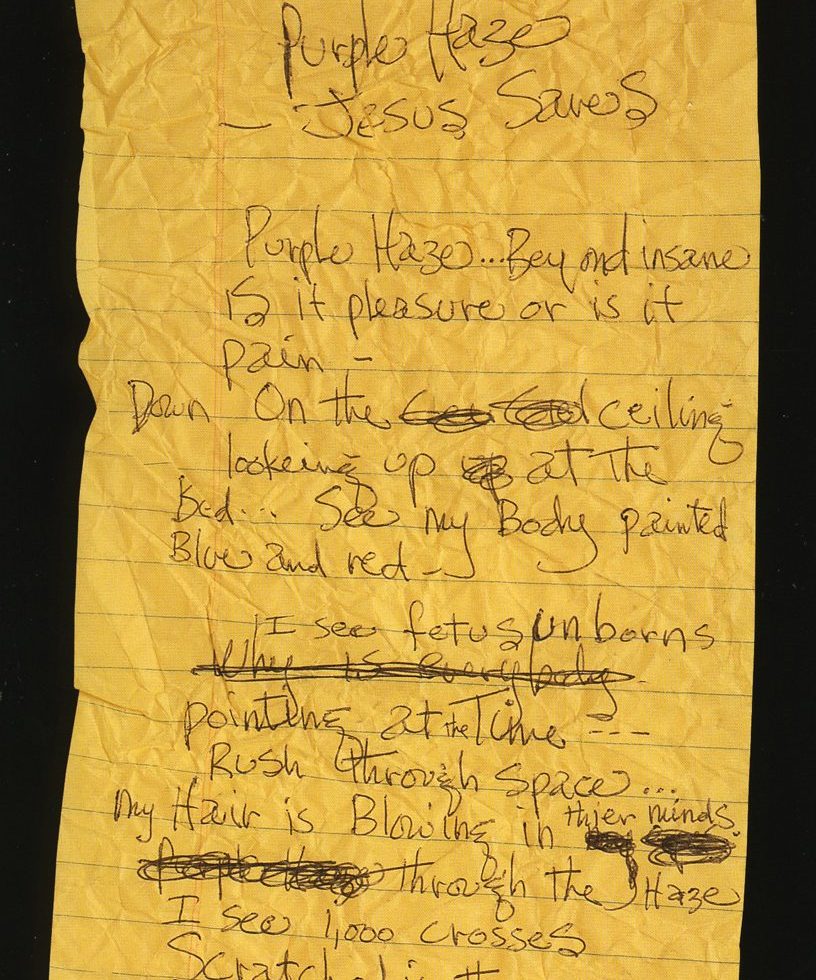 Purple Haze
– Jesus Saves
Purple Haze... Beyond insane
is it pleasure or is it
pain –
Down On the ceiling
lookeing up at the
Bed... See my Body painted
Blue and red –
I see fetus unborns
Why is everybody
pointing at the Time ---
Rush through Space...
my Hair is Blowing in thier minds.
Purple Haze through the Haze
I see 1,000 crosses